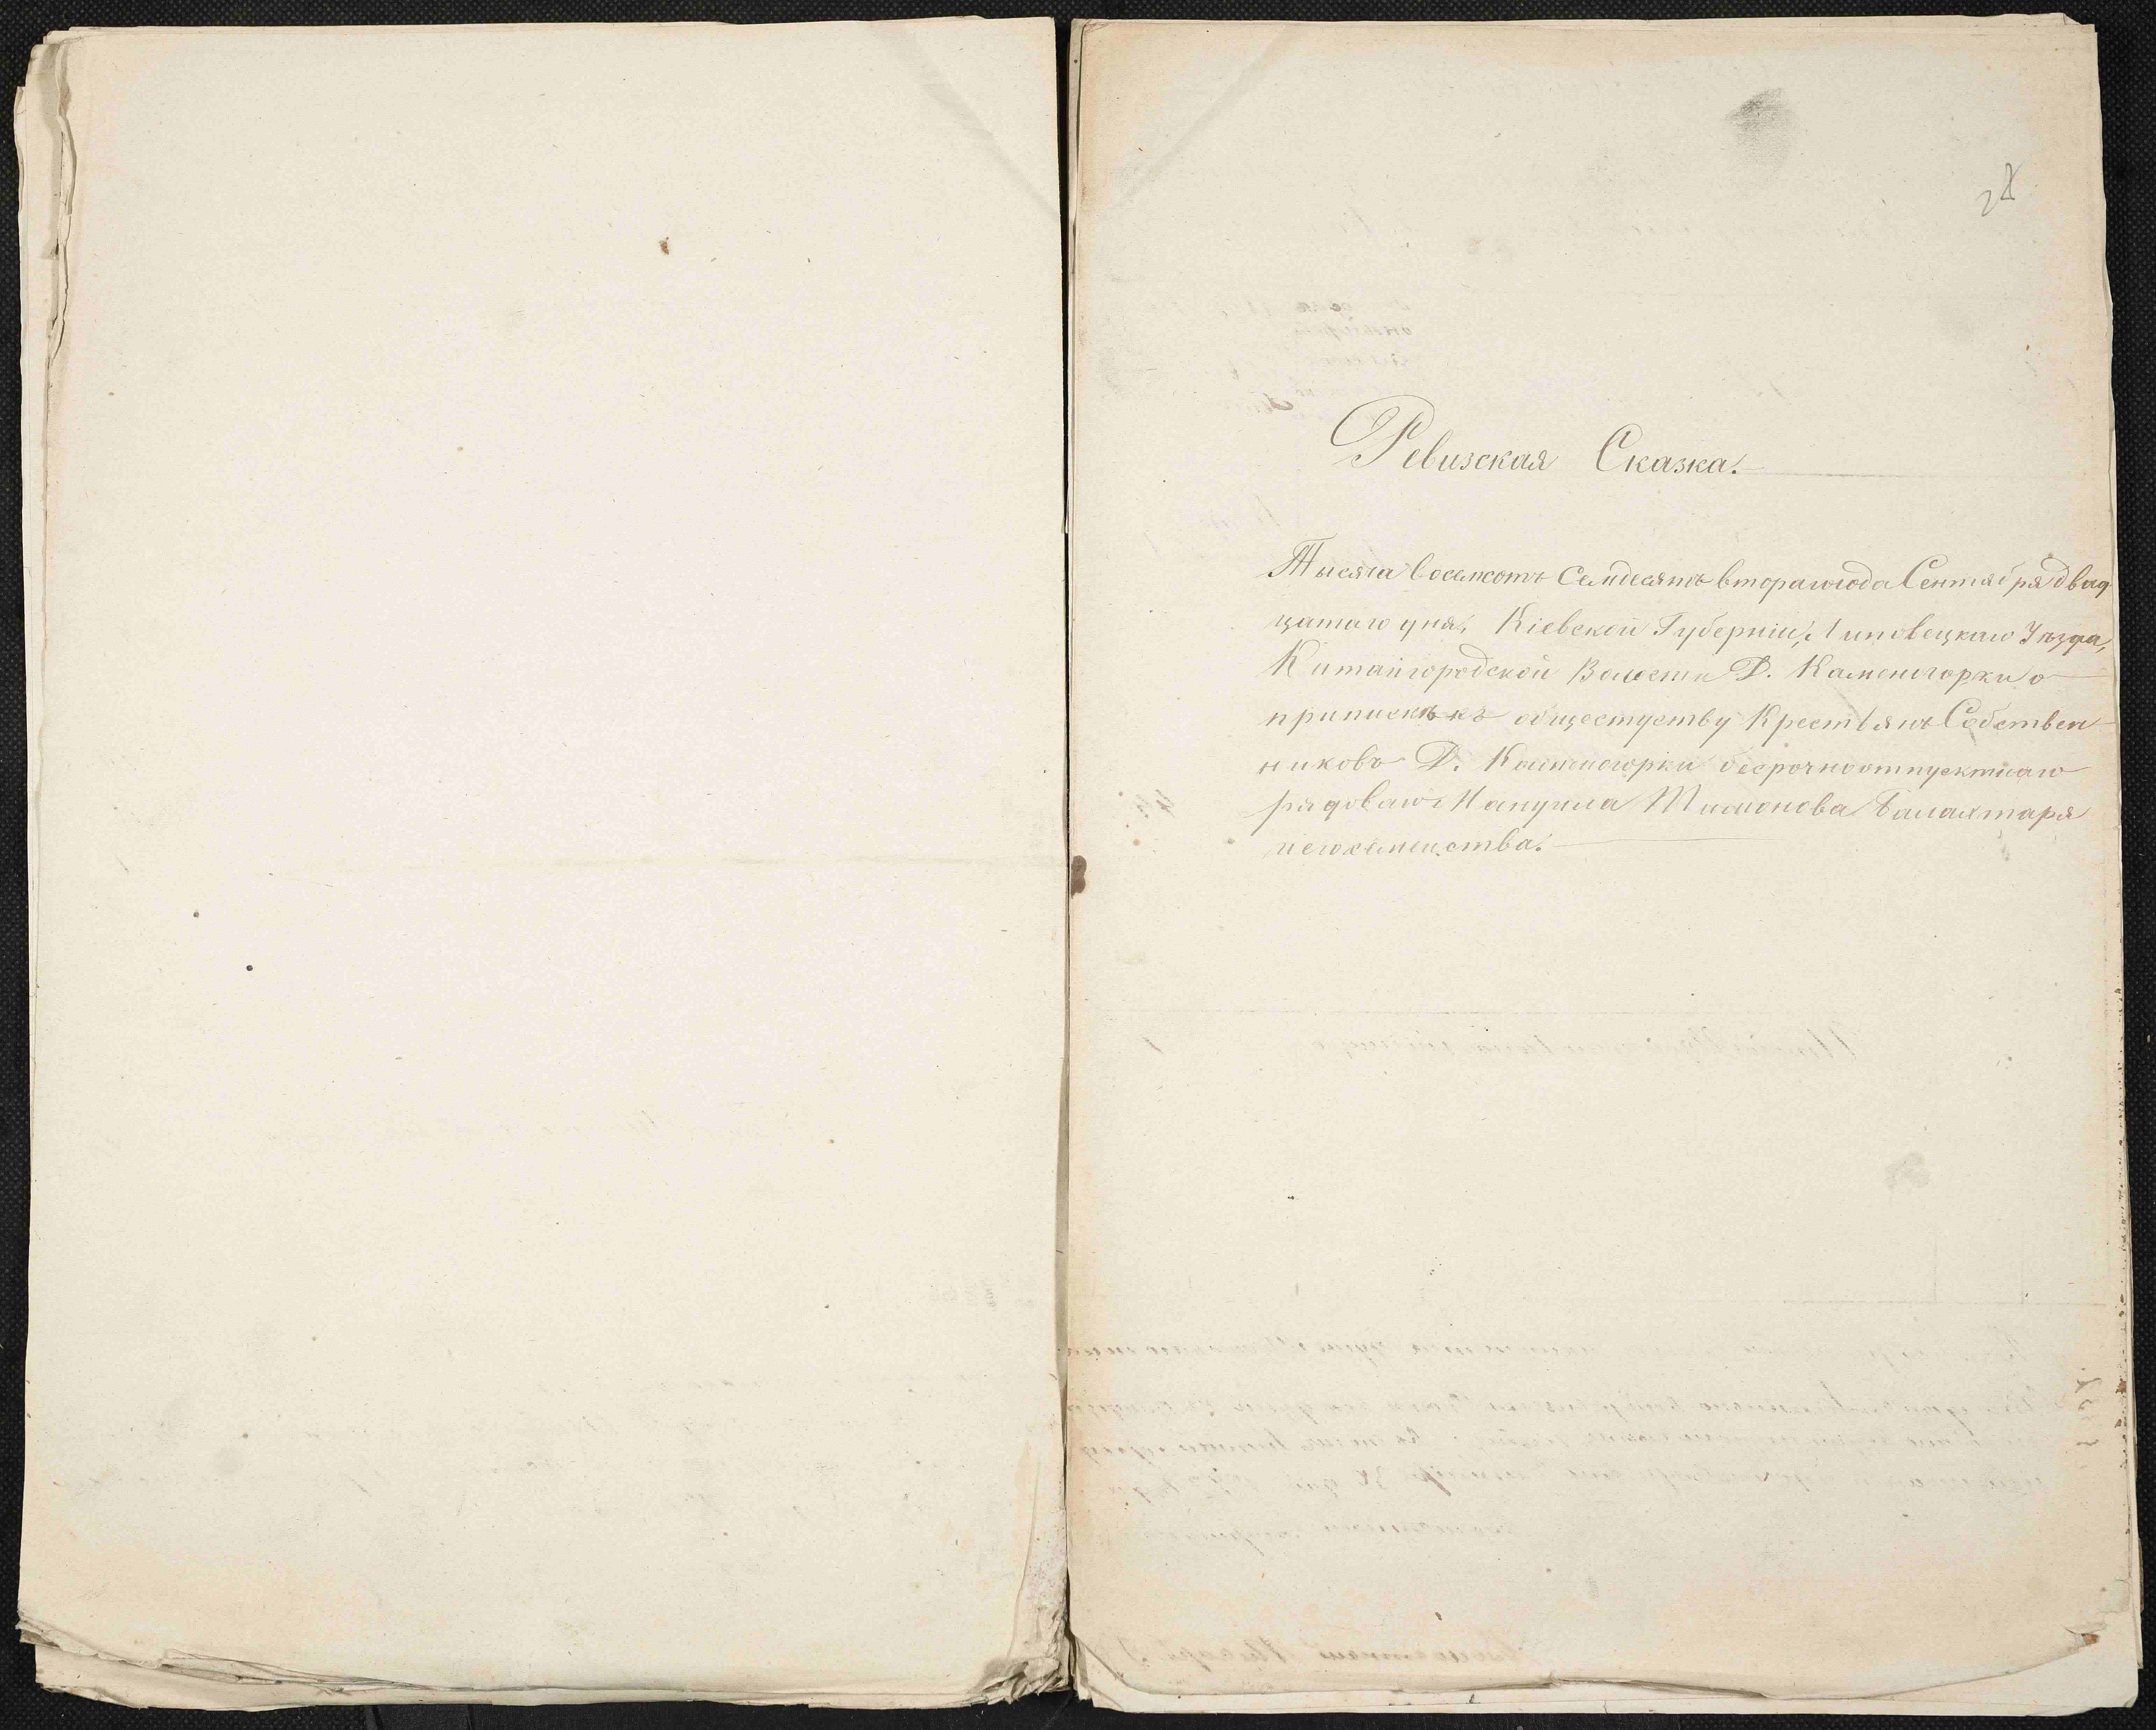 28
Ревизская Сказка.
Тысяча восемсотъ Семдесятъ втораго года Сентября двад
цатаго дня, Кіевской Губерніи, Липовецкаго Уѣзда,
Китайгородской Волости Д. Каменогорки о
припискѣ къ общестуству Крестьянъ Собствен
никовъ Д. Каменогорки безсрочноотпускнаго
рядоваго Тимонова
и его семейства.